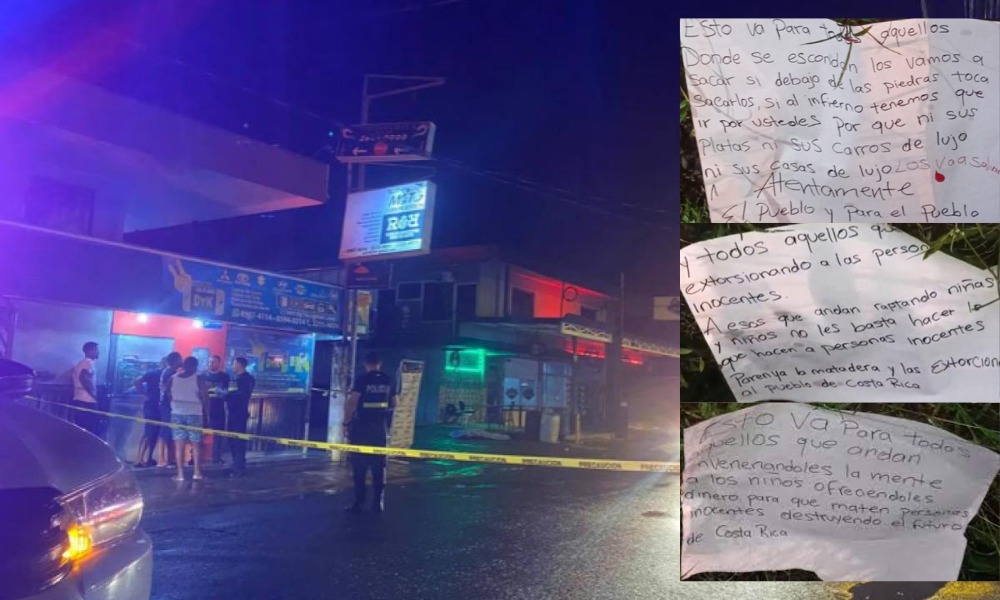 DYK
R&H
POLICIA
PRECAUCION
PRECAUCION
PRECAUCION
Esto va Para aquellos
Donde se escondan los vamos a
sacar si debajo de las piedras toca
sacarlos, si al infierno tenemos que
ir por ustedes Por que ni sus
Platas ni sus carros de lujo
ni sus casas de lujo Los va a
Atentamente
El Pueblo y Para el Pueblo
y todos aquellos
extorsionando a las
inocentes.
A esos que andan raptando niñas
y niños no les basta hacer lo
que hacen a personas inocentes
Parenya la matadera y las Extorcion
al pueblo de Costa Rica
Esto Va Para todos
aquellos que andan
invenenandoles la mente
a los niños ofreciendoles
dinero para que maten personas
inocentes destruyendo el futuro
de Costa Rica